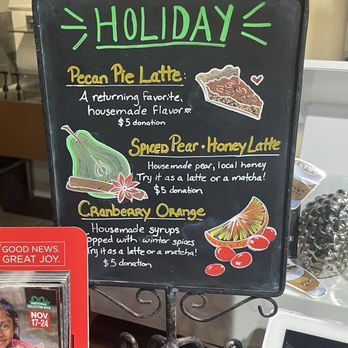 HOLIDAY
Pecan Pie Latte:
A returning favorite,
housemade flavor
$5 donation
SPICED PEAR + HONEY LATTE
Housemade pear, local honey
Try it as a latte or a matcha!
$5 donation
Cranberry Orange
Housemade syrups
topped with winter spices
Try it as a latte or a matcha!
$5 donation
GOOD NEWS.
GREAT JOY.
NOV.
17-24